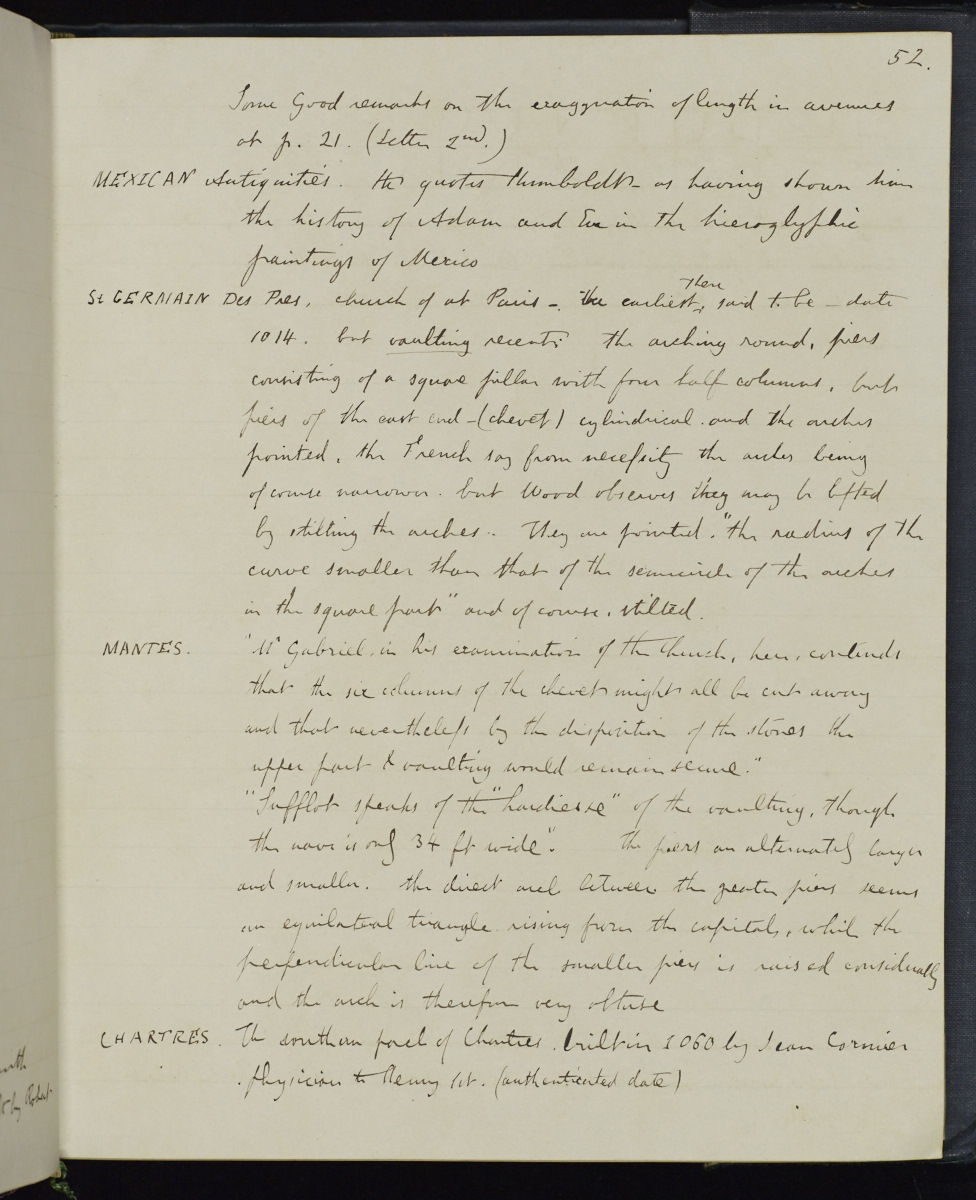 52.
Some Good remarks on the exaggeration of length in avenues
at p. 21. (Letter 2nd.)
MEXICAN Antiquities. He quotes Humboldt - as having shown him
the history of Adam and Eve in the hieroglyphic
paintings of Mexico
St GERMAIN Des Pres, church of at Paris -. the earliest, there said to be - date
1014. but vaulting recent; the arching round, piers
consisting of a square pillar with four half columns, but
piers of the east end - (chevet) cylindrical. and the arches
pointed, the French say from necessity the arches being
of course narrower. but Wood observes they may be lifted
by stilting the arches.. They are pointed. "the radius of the
curve smaller than that of the semicircle of the arches
in the square part" and of course, stilted.
MANTES. "Mr Gabriel, in his examination of the Church, here, contends
that the six columns of the chevet might all be cut away
and that nevertheless by the disposition of the stones the
upper part & vaulting would remain secure."
"Sufflot speaks of the "hardiesse" of the vaulting, though
the nave is only 34 ft wide". the piers are alternately larger
and smaller. the direct arch between the greater piers seems
an equilateral triangle rising from the capitals, while the
perpendicular line of the smaller piers is raised considerably
and the arch is therefore very obtuse
CHARTRES. The southern porch of Chartres. built in 1060 by Jean Cormier
physician to Henry 1st. (authenticated date)
by Robert